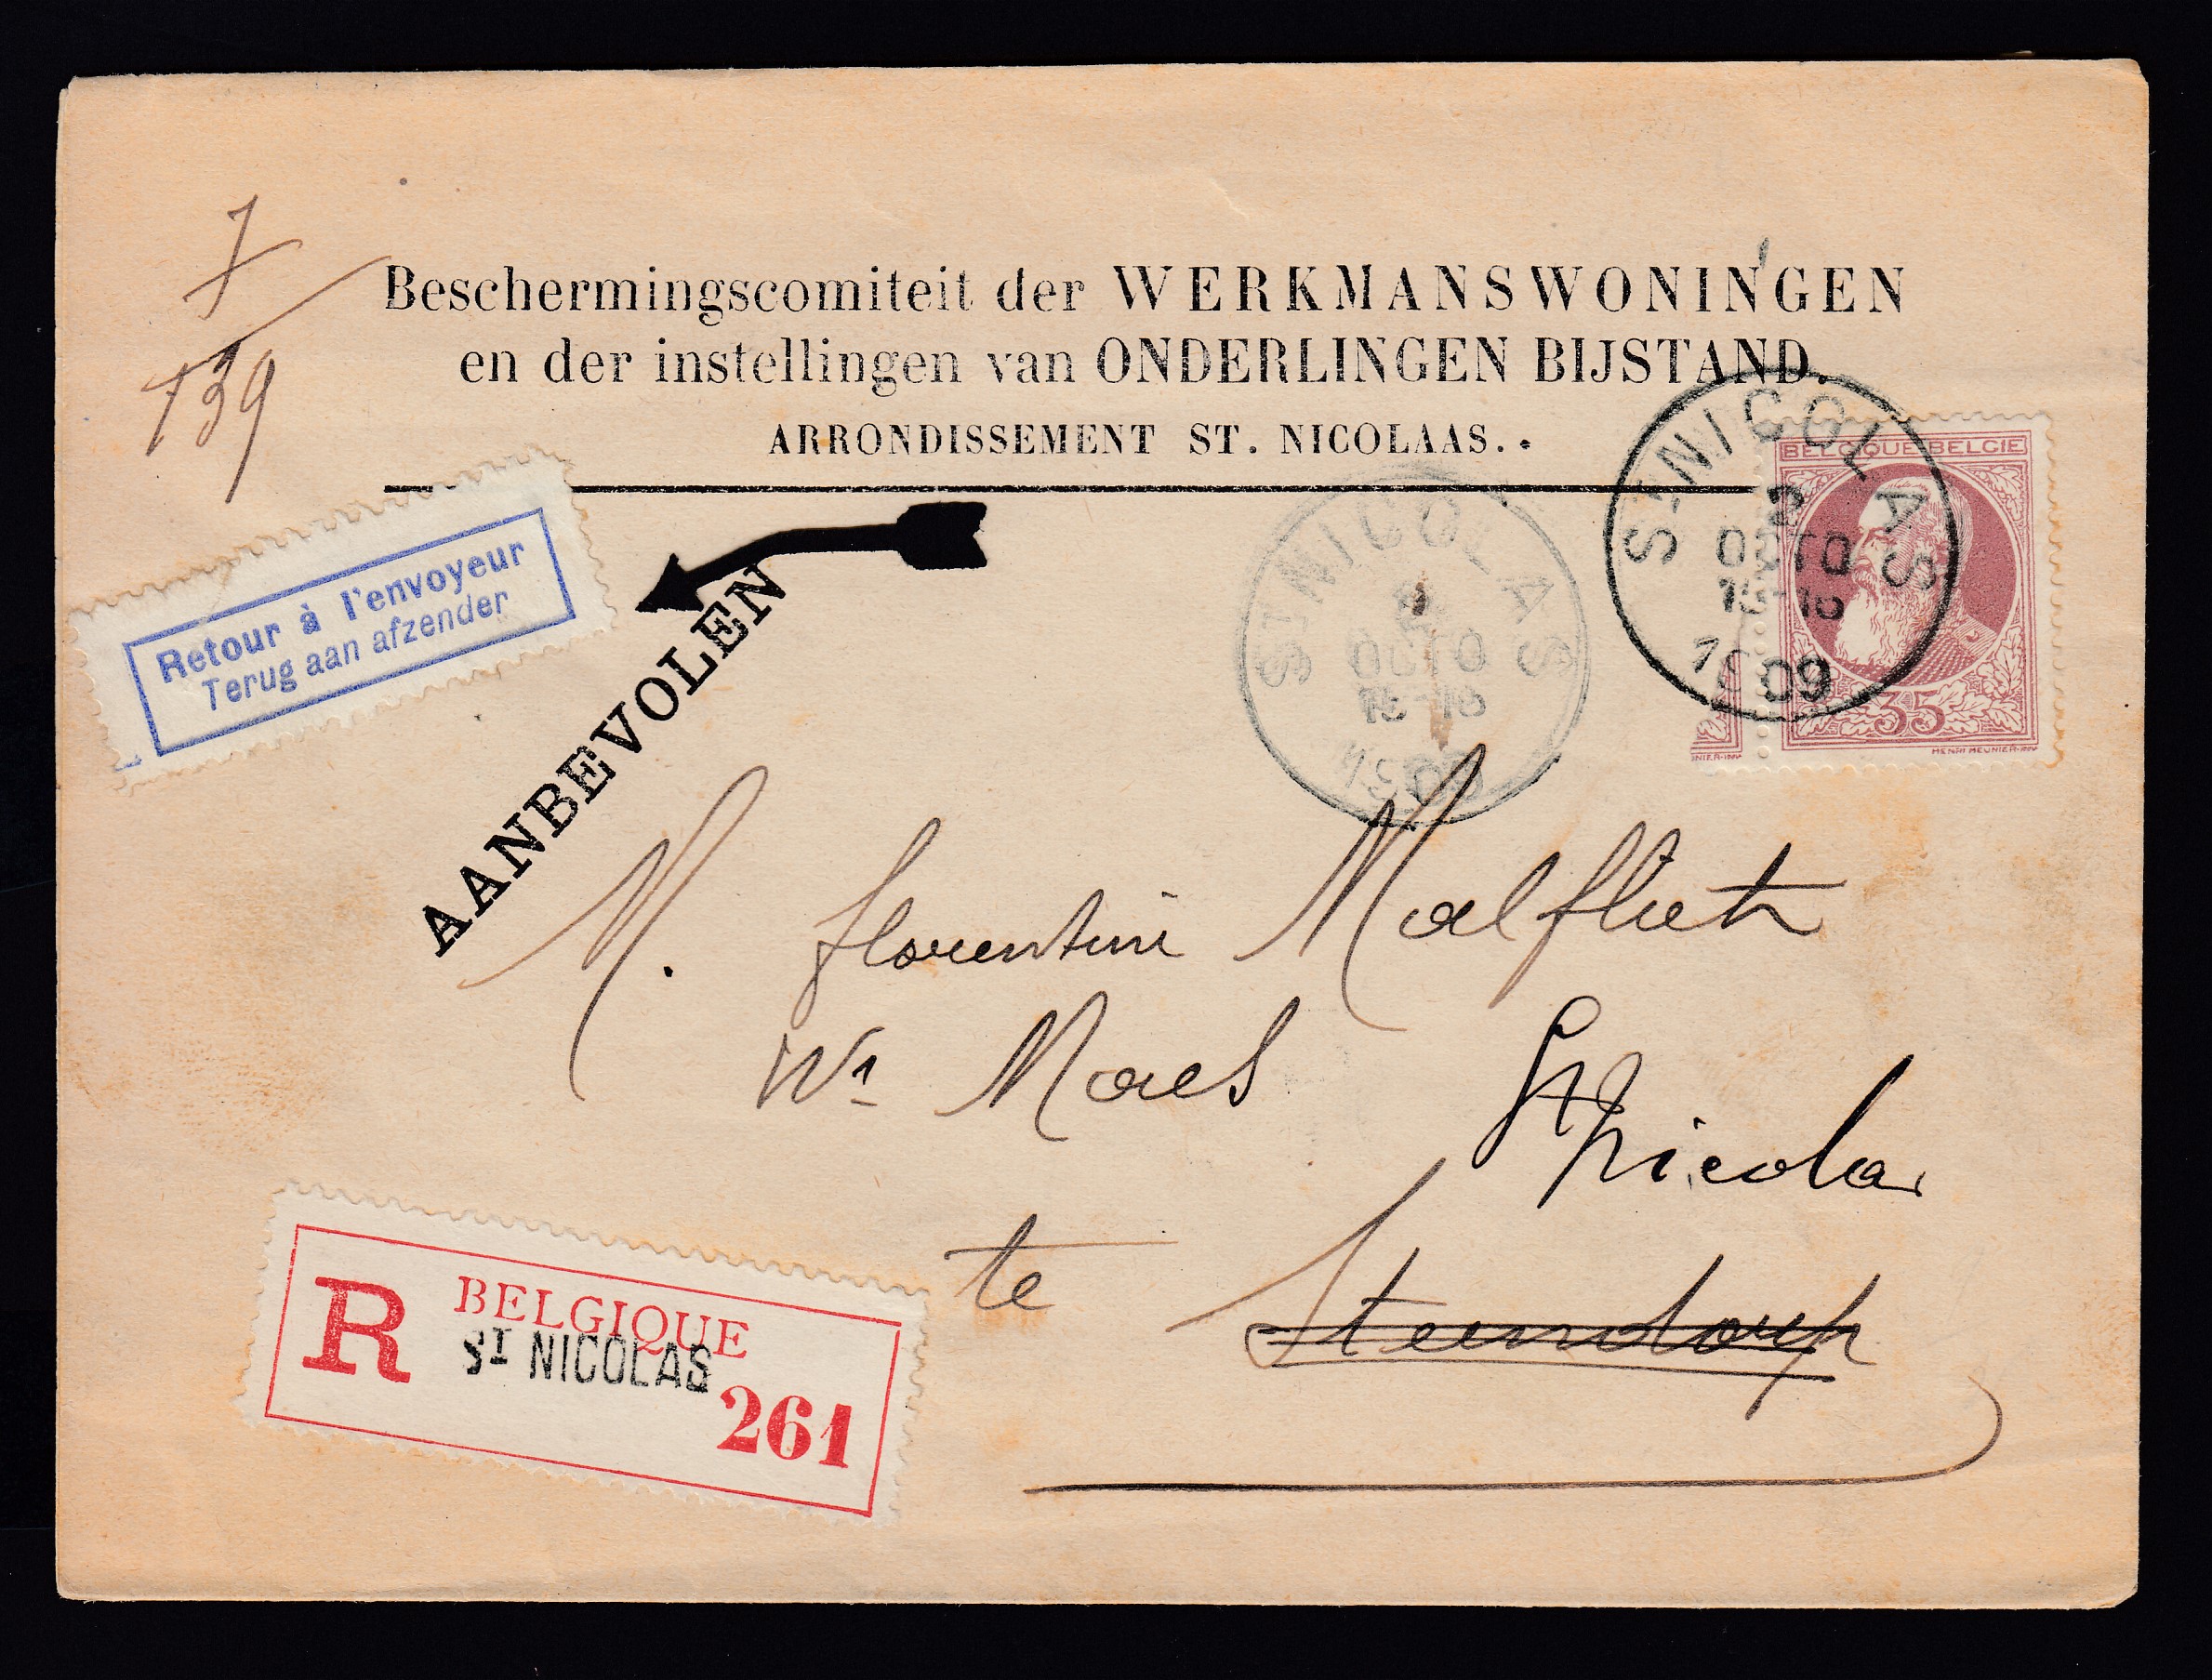 7
139
Beschermingscomiteit der WERKMANSWONINGEN
en der instellingen van ONDERLINGEN BIJSTAND.
ARRONDISSEMENT ST. NICOLAAS.
Retour à l'envoyeur
Terug aan afzender
AANBEVOLEN
ST NICOLAS
2
OCTO
15-16
1909
ST-NICOLAS
2
OCTO
15-16
1909
BELGIQUE BELGIË
35
HENRI MEUNIER-INV
NIER-INV
M. Florentine Malfliet
We Maes
St Nicolas
te Steendorp
R BELGIQUE
ST NICOLAS
261